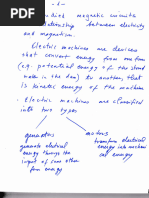 -1-
studies magnetic circuits
relationship between electricity
and magnetism.
Electric machines are devices
that convert energy from one form
(e.g. potential energy of the stored
water in the dam) to another, that
is kinetic energy of the machine
- Electric machines are classified
into two types
generators
motors
generate electrical
energy through the
input of some other
form energy
transform electrical
energy into mechani-
cal energy